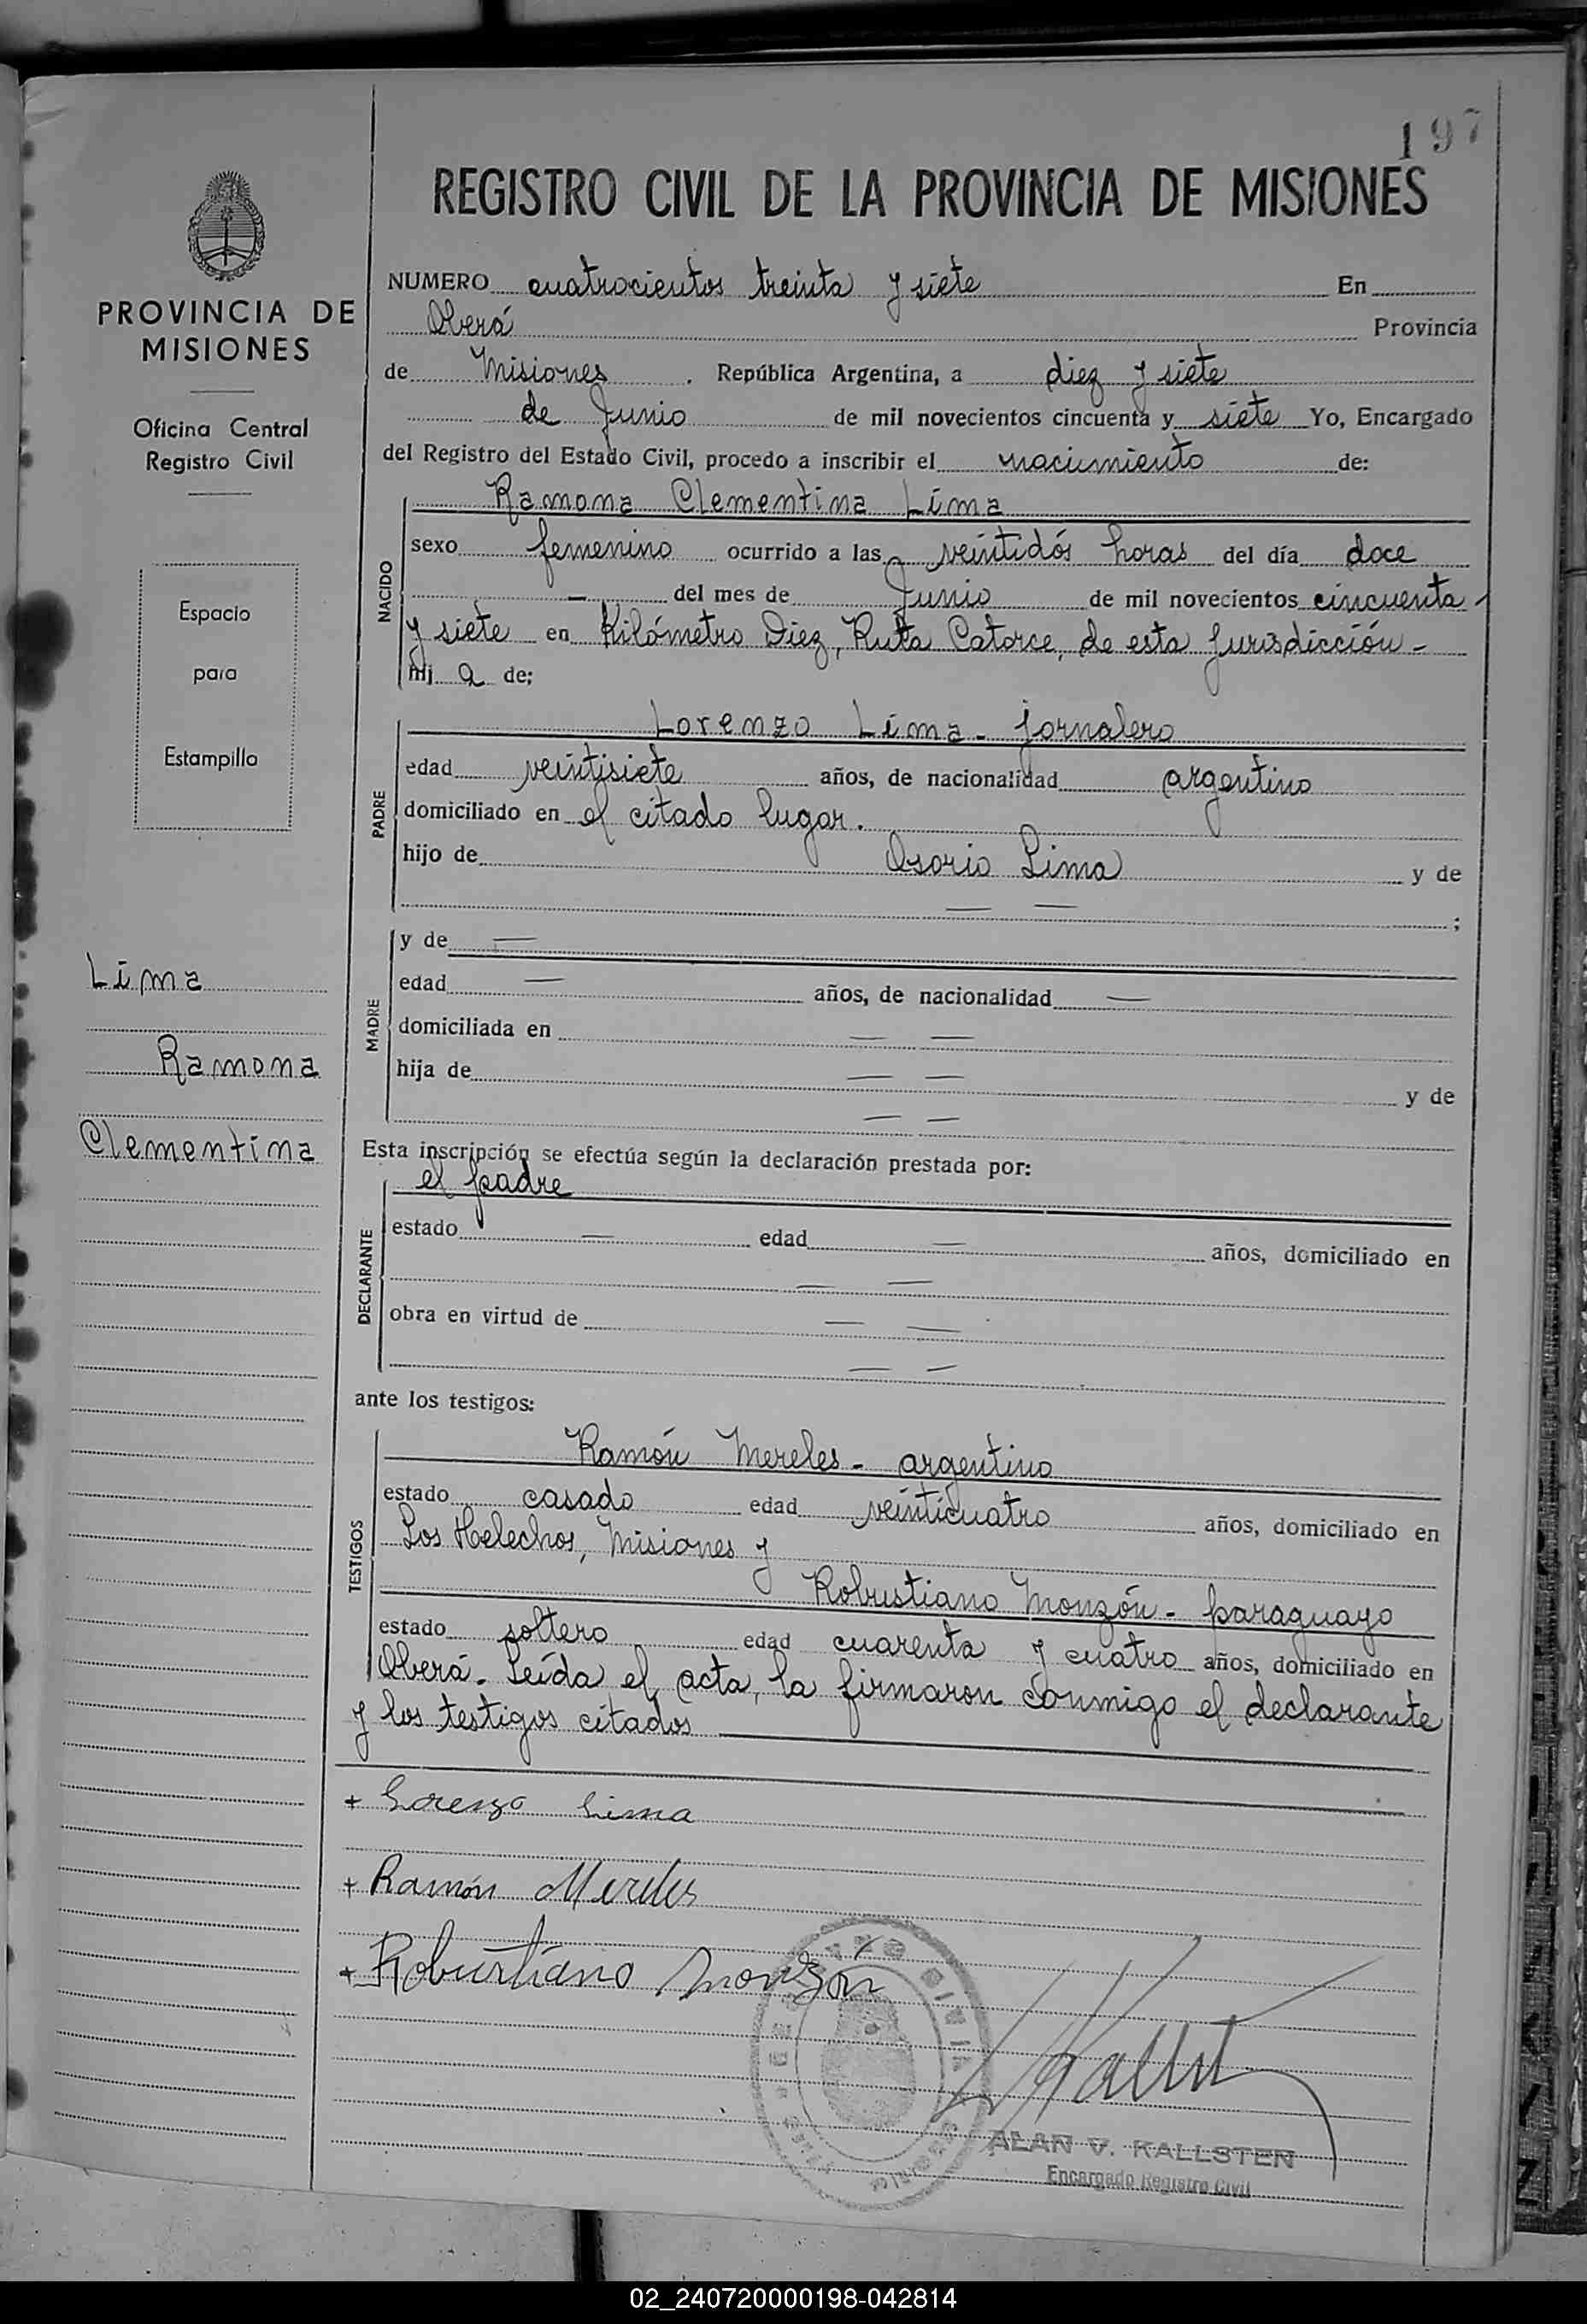 197
REGISTRO CIVIL DE LA PROVINCIA DE MISIONES
PROVINCIA DE
MISIONES
Oficina Central
Registro Civil
Espacio
para
Estampilla
Lima
Ramona
Clementina
NUMERO cuatrocientos treinta y siete En
Oberá Provincia
de Misiones . República Argentina, a diez y siete
de Junio de mil novecientos cincuenta y siete Yo, Encargado
del Registro del Estado Civil, procedo a inscribir el nacimiento de:
NACIDO
Ramona Clementina Lima
sexo femenino ocurrido a las veintidós horas del día doce
— del mes de Junio de mil novecientos cincuenta -
y siete en Kilómetro Diez, Ruta Catorce, de esta Jurisdicción -
hij a de;
PADRE
Lorenzo Lima - jornalero
edad veintisiete años, de nacionalidad argentino
domiciliado en el citado lugar.
hijo de Osorio Lima y de
— — ;
MADRE
y de —
edad — años, de nacionalidad —
domiciliada en — —
hija de — — y de
— —
Esta inscripción se efectúa según la declaración prestada por:
DECLARANTE
el padre
estado — edad — años, domiciliado en
— —
obra en virtud de — —
— —
ante los testigos:
TESTIGOS
Ramón Mereles - argentino
estado casado edad veinticuatro años, domiciliado en
Los Helechos, Misiones y
Robustiano Monzón - paraguayo
estado soltero edad cuarenta y cuatro años, domiciliado en
Oberá. Leída el acta, la firmaron conmigo el declarante
y los testigos citados
+ Lorenzo Lima
+ Ramón Mereles
+ Robustiano Monzón
ALAN V. KALLSTEN
Encargado Registro Civil
02_240720000198-042814